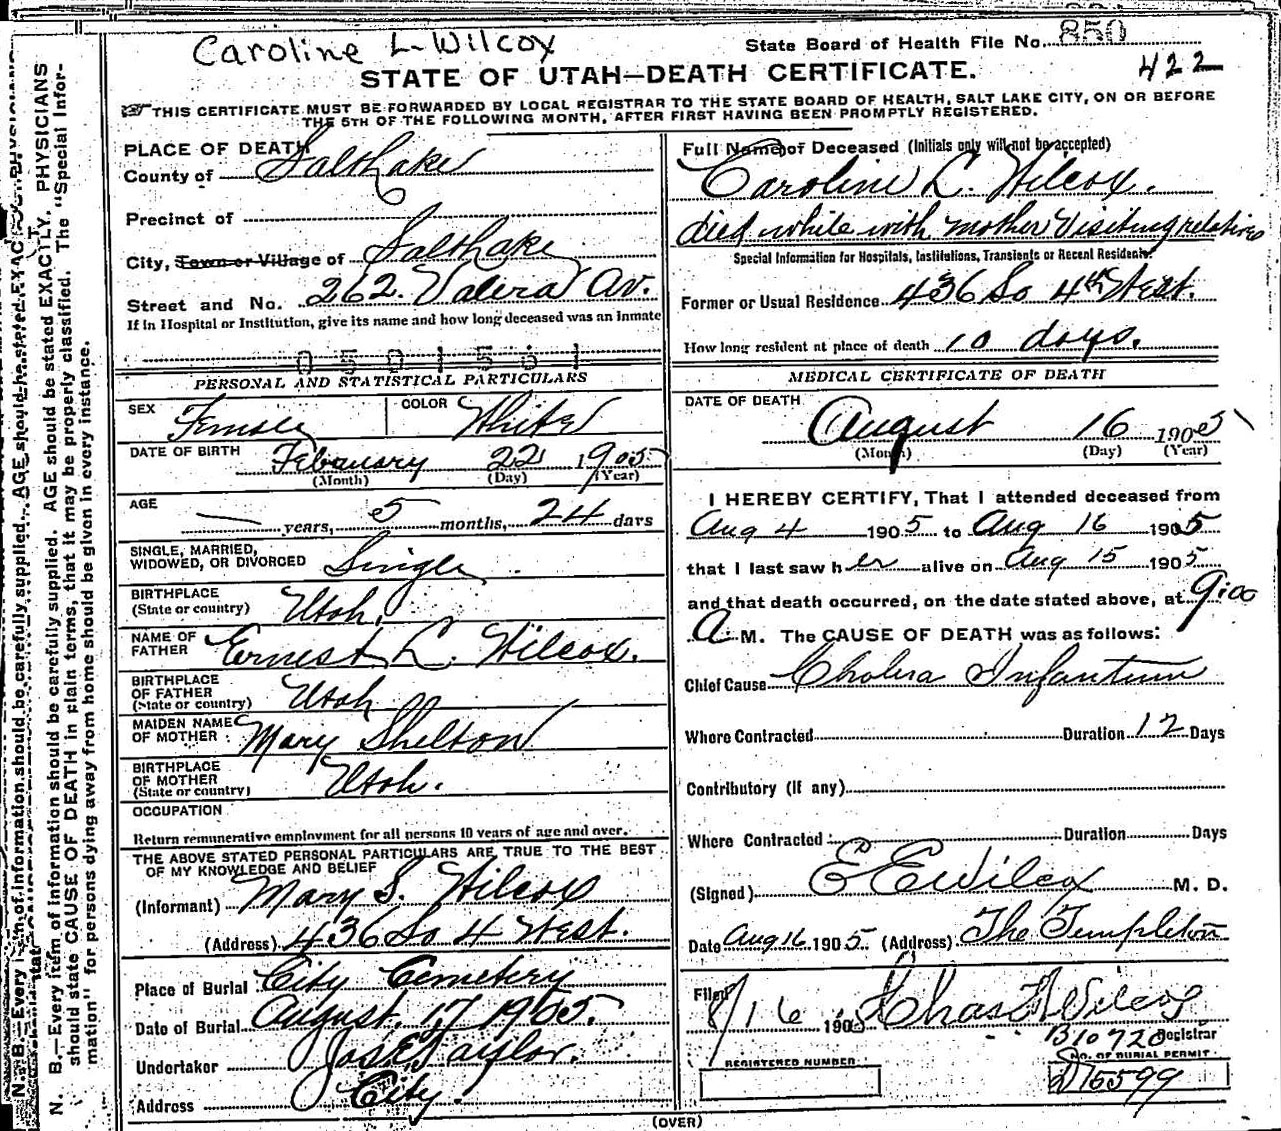 Caroline L. Wilcox
State Board of Health File No. 850
STATE OF UTAH—DEATH CERTIFICATE.
422
THIS CERTIFICATE MUST BE FORWARDED BY LOCAL REGISTRAR TO THE STATE BOARD OF HEALTH, SALT LAKE CITY, ON OR BEFORE
THE 5TH OF THE FOLLOWING MONTH, AFTER FIRST HAVING BEEN PROMPTLY REGISTERED.
N. B.—Every item of information should be carefully supplied. AGE should be stated EXACTLY. PHYSICIANS
should state CAUSE OF DEATH in plain terms, that it may be properly classified. The "Special Infor-
mation" for persons dying away from home should be given in every instance.
PLACE OF DEATH
County of Salt Lake
Precinct of
City, Town or Village of Salt Lake
Street and No. 262. Valera Av.
If in Hospital or Institution, give its name and how long deceased was an inmate
0501561
PERSONAL AND STATISTICAL PARTICULARS
SEX Female COLOR White
DATE OF BIRTH February 22 1905
(Month) (Day) (Year)
AGE — years, 5 months, 24 days
SINGLE, MARRIED,
WIDOWED, OR DIVORCED Single
BIRTHPLACE
(State or country) Utah.
NAME OF
FATHER Ernest L. Wilcox.
BIRTHPLACE
OF FATHER
(State or country) Utah
MAIDEN NAME
OF MOTHER Mary Shelton
BIRTHPLACE
OF MOTHER
(State or country) Utah.
OCCUPATION
Return remunerative employment for all persons 10 years of age and over.
THE ABOVE STATED PERSONAL PARTICULARS ARE TRUE TO THE BEST
OF MY KNOWLEDGE AND BELIEF
(Informant) Mary S. Wilcox
(Address) 436 So 4 West.
Place of Burial City Cemetery
Date of Burial August. 17 1905.
Undertaker Jos E. Taylor.
Address City.
Full Name of Deceased (Initials only will not be accepted)
Caroline L. Wilcox.
died while with mother Visiting relatives
Special Information for Hospitals, Institutions, Transients or Recent Residents.
Former or Usual Residence 436 So 4th West.
How long resident at place of death 10 days.
MEDICAL CERTIFICATE OF DEATH
DATE OF DEATH August 16 1905
(Month) (Day) (Year)
I HEREBY CERTIFY, That I attended deceased from
Aug 4 1905 to Aug 16 1905
that I last saw her alive on Aug 15 1905
and that death occurred, on the date stated above, at 9:00
A. M. The CAUSE OF DEATH was as follows:
Chief Cause Cholera Infantum
Where Contracted Duration 12 Days
Contributory (if any)
Where Contracted Duration Days
(Signed) E E Wilcox M. D.
Date Aug 16 1905 (Address) The Templeton
Filed 8/16 1905 Chas Wilcox
B10720 Registrar
REGISTERED NUMBER
No. OF BURIAL PERMIT
15599
(OVER)